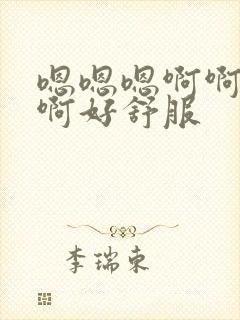 嗯嗯嗯啊啊
啊好舒服
李瑞东